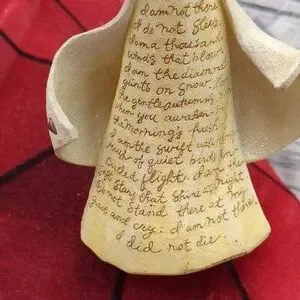 I am not there
I do not sleep
I am a thousand
winds that blow
I am the diamond
glints on snow.
the gentle autumn
When you awaken
the morning's hush
I am the swift up
rush of quiet birds in
circled flight. I am the
soft stars that shine at night
Do not stand there at my
grave and cry: I am not there.
I did not die.